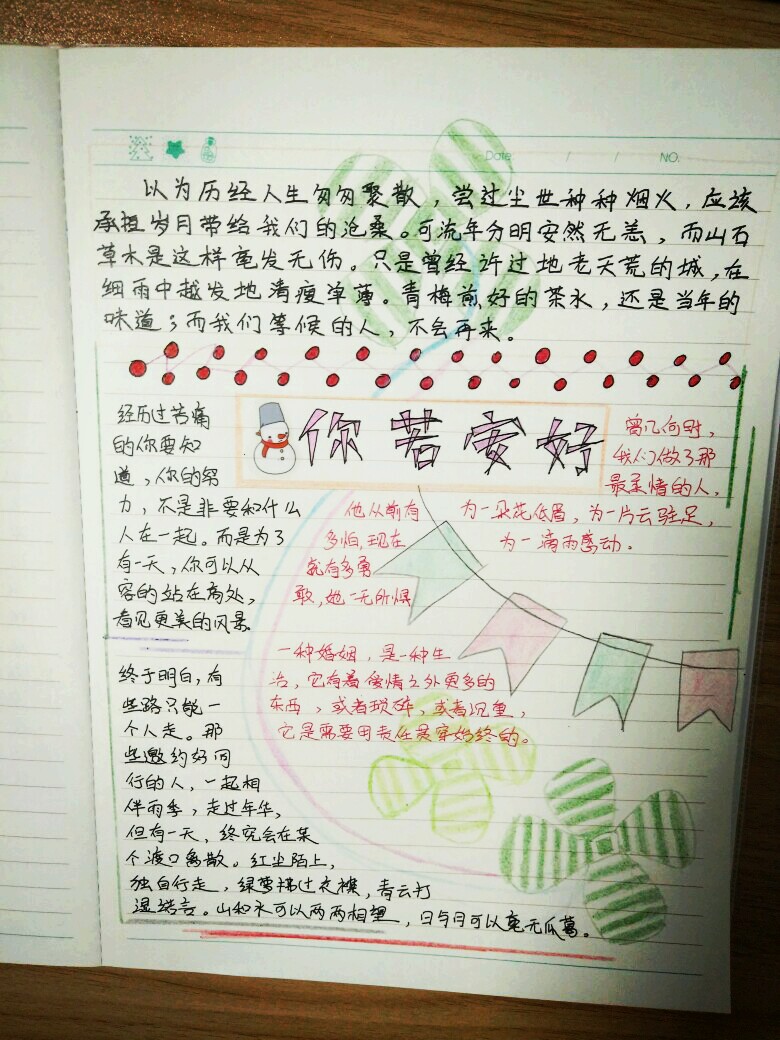 Date / / NO.
以为历经人生匆匆聚散，尝过尘世种种烟火，应该
承担岁月带给我们的沧桑。可流年分明安然无恙，而山石
草木是这样毫发无伤。只是曾经许过地老天荒的城，在
细雨中越发地清瘦单薄。青梅煎好的茶水，还是当年的
味道；而我们等候的人，不会再来。
你若安好
经历过苦痛
的你要知
道，你的努
力，不是非要和什么
人在一起。而是为了
有一天，你可以从
容的站在高处，
看见更美的风景
他从前有
多怕，现在
就有多勇
敢，她一无所惧
曾几何时，
我们做了那
最柔情的人，
为一朵花低眉，为一片云驻足，
为一滴雨感动．
一种婚姻，是一种生
活，它有着爱情之外更多的
东西，或者琐碎，或者沉重，
它是需要用责任贯穿始终的。
终于明白，有
些路只能一
个人走。那
些邀约好同
行的人，一起相
伴雨季，走过年华，
但有一天，终究会在某
个渡口离散。红尘陌上，
独自行走，绿萝拂过衣襟，青云打
湿诺言。山和水可以两两相望，日与月可以毫无瓜葛。